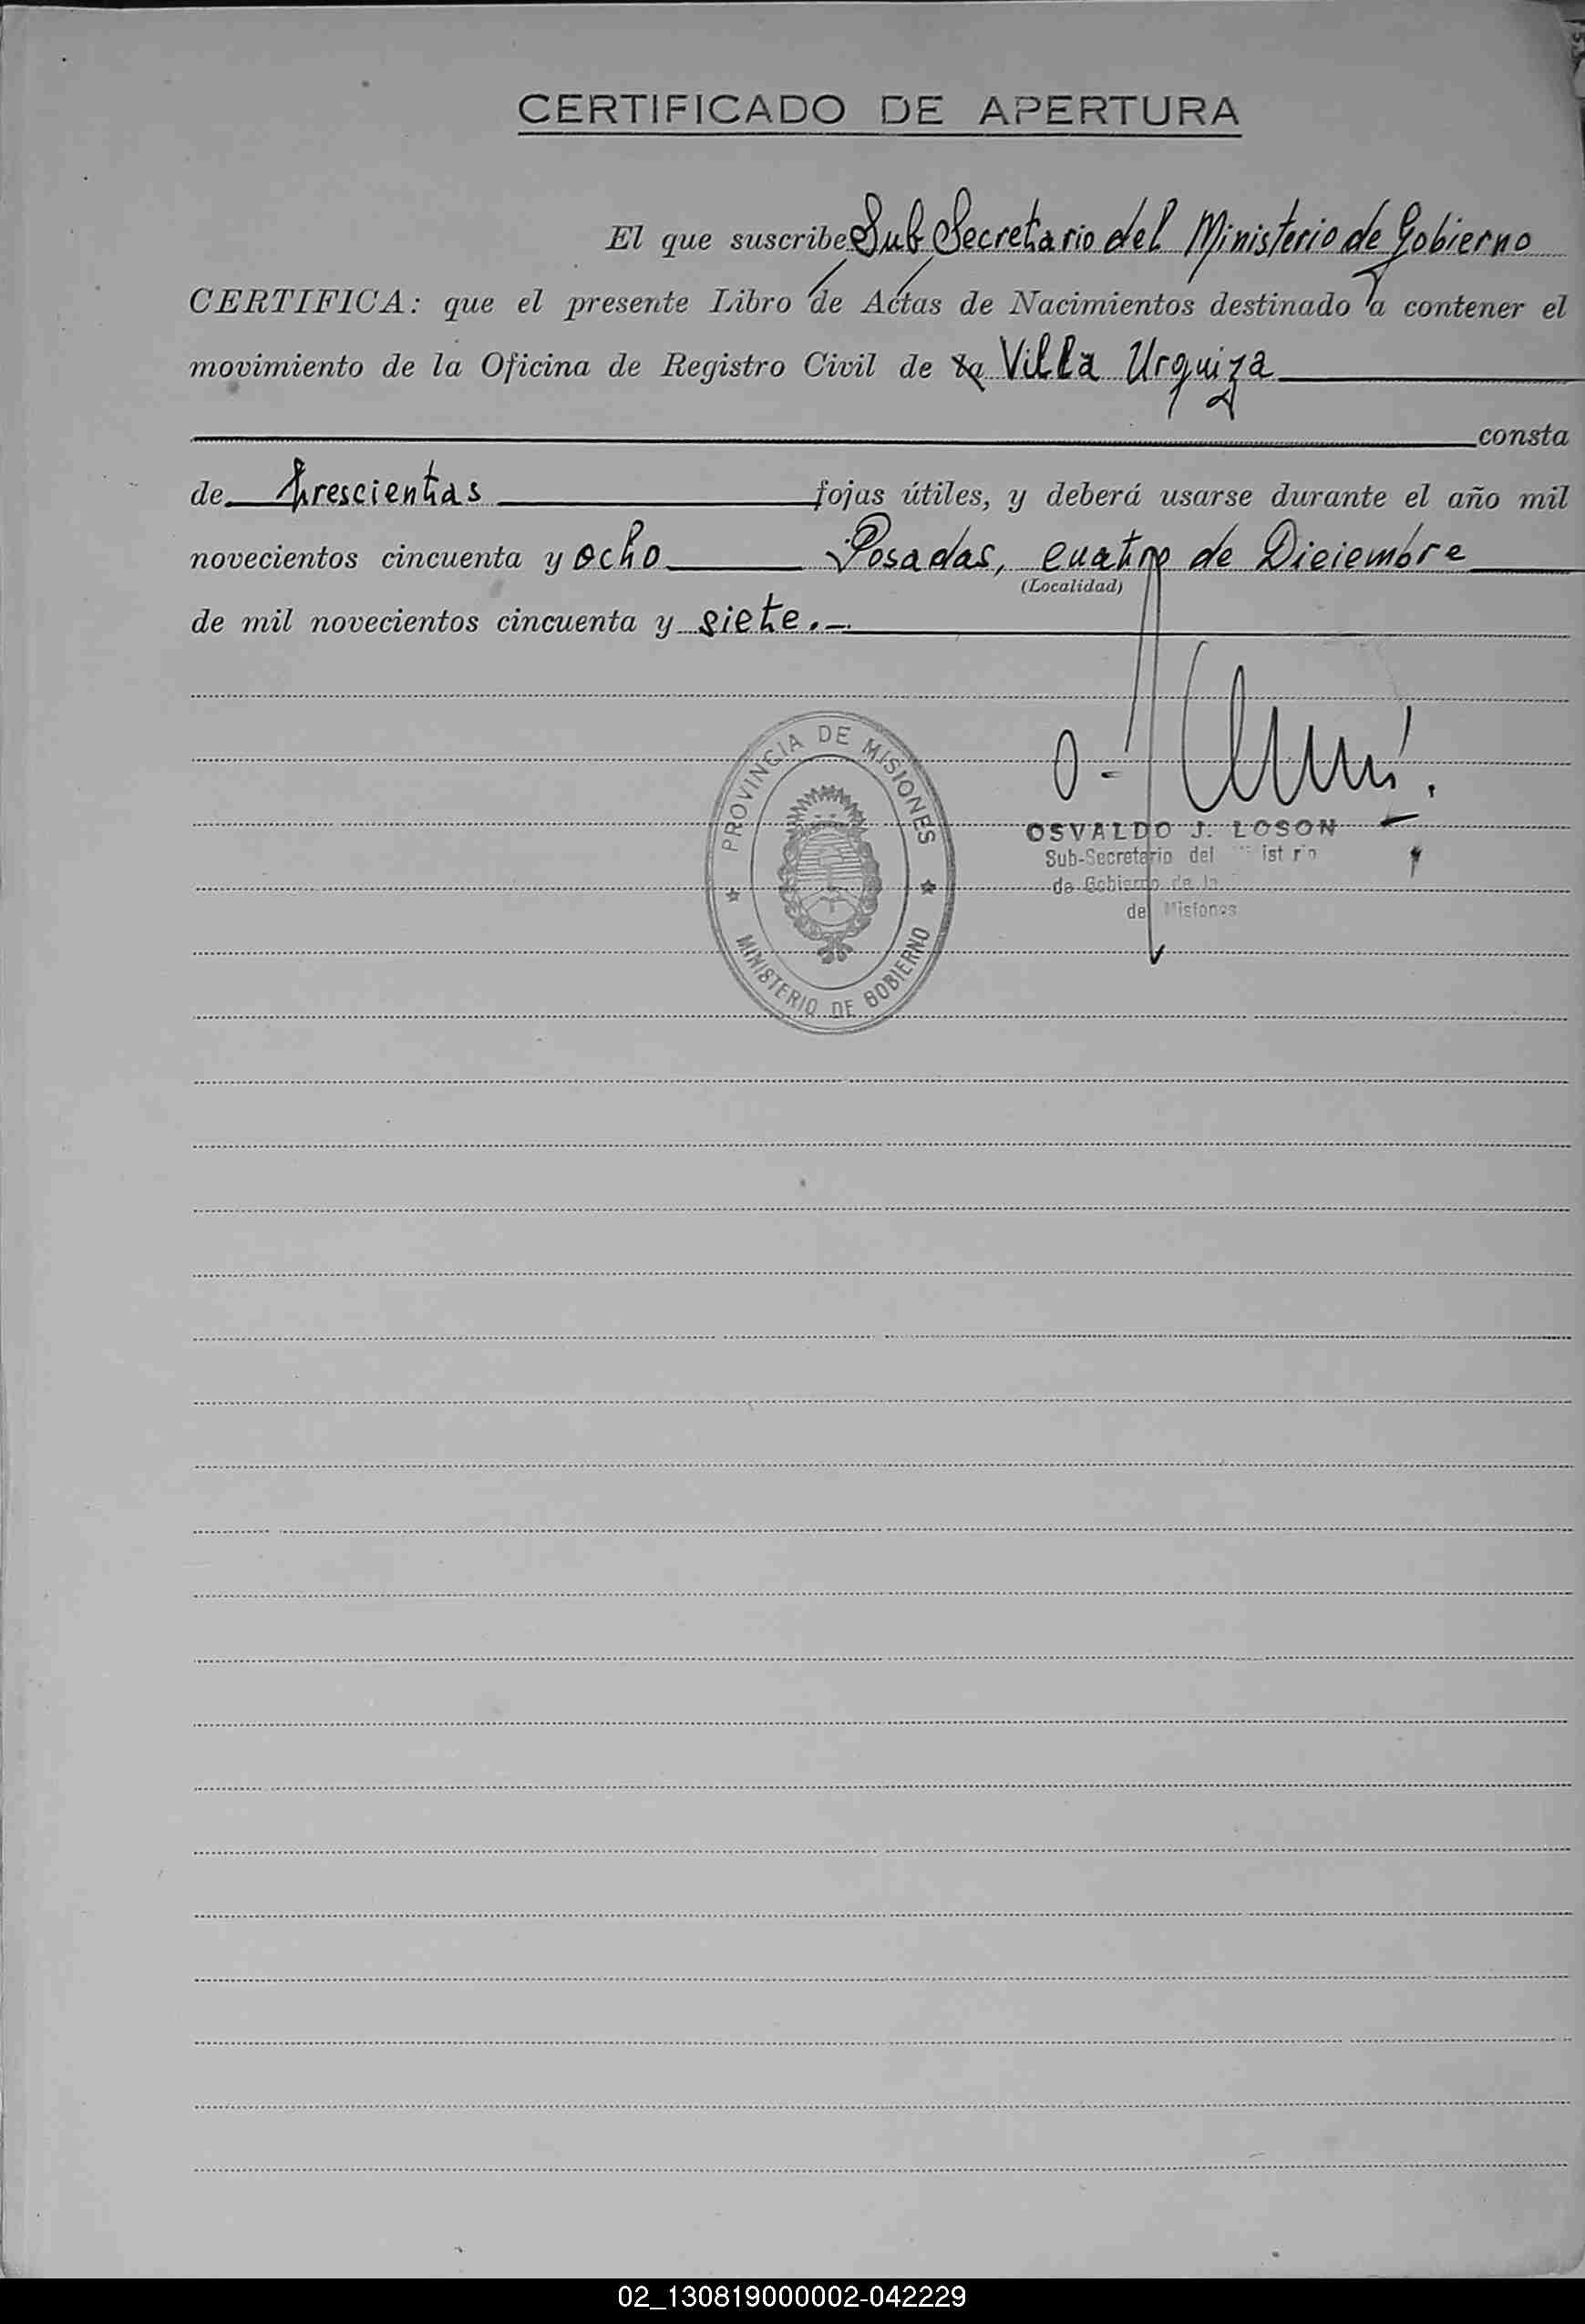 CERTIFICADO DE APERTURA
El que suscribe Sub Secretario del Ministerio de Gobierno
CERTIFICA: que el presente Libro de Actas de Nacimientos destinado a contener el
movimiento de la Oficina de Registro Civil de Villa Urquiza
consta
de trescientas fojas útiles, y deberá usarse durante el año mil
novecientos cincuenta y ocho Posadas, cuatro de Diciembre
(Localidad)
de mil novecientos cincuenta y siete.-
PROVINCIA DE MISIONES
MINISTERIO DE GOBIERNO
OSVALDO J. LOSON
Sub-Secretario del
de Gobierno de la
de Misiones
02_130819000002-042229